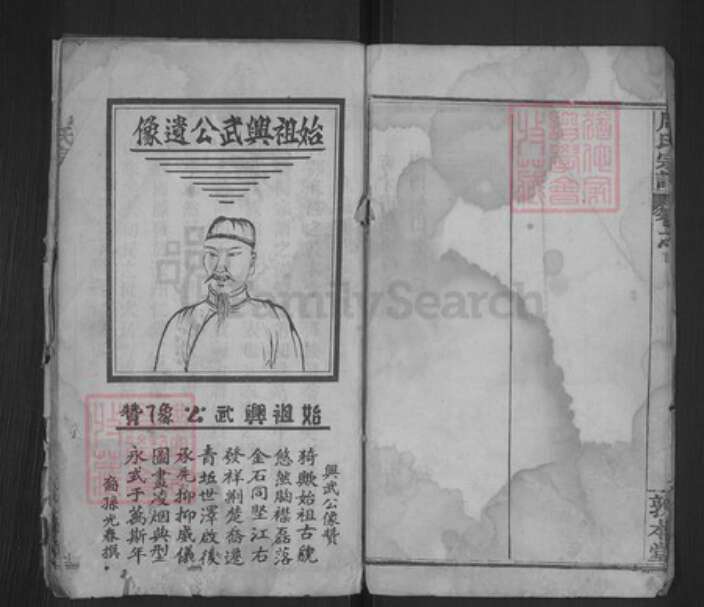 始祖興武公遺像
始祖興武公像贊
興武公像贊
猗歟始祖古貌
悠然胸襟磊落
金石同堅江右
發祥荊楚喬遷
青毡世澤啟後
承先抑抑威儀
圖畫凌烟典型
永式于萬斯年
裔孫光春撰
氏宗譜
敦本堂
FamilySearch